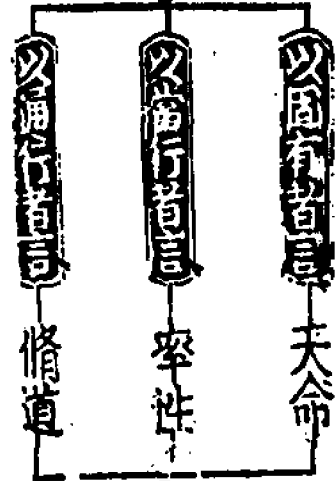 以固有者言
天命
以當行者言
率性
以通行者言
脩道